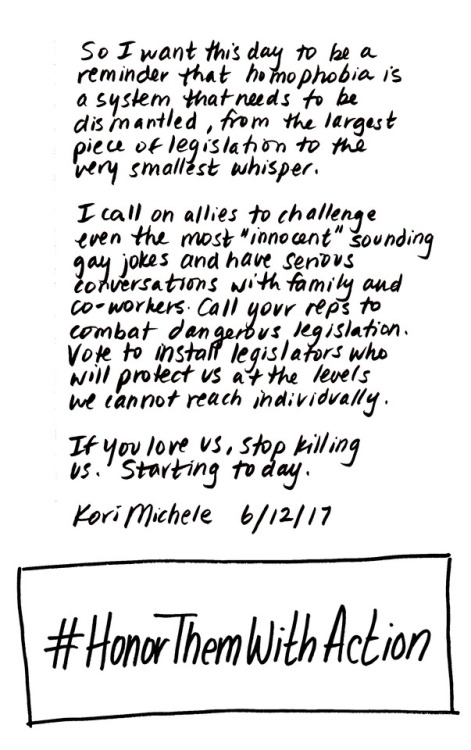 So I want this day to be a
reminder that homophobia is
a system that needs to be
dismantled, from the largest
piece of legislation to the
very smallest whisper.
I call on allies to challenge
even the most "innocent" sounding
gay jokes and have serious
conversations with family and
co-workers. Call your reps to
combat dangerous legislation.
Vote to install legislators who
will protect us at the levels
we cannot reach individually.
If you love us, stop killing
us. Starting today.
Kori Michele 6/12/17
#HonorThemWithAction